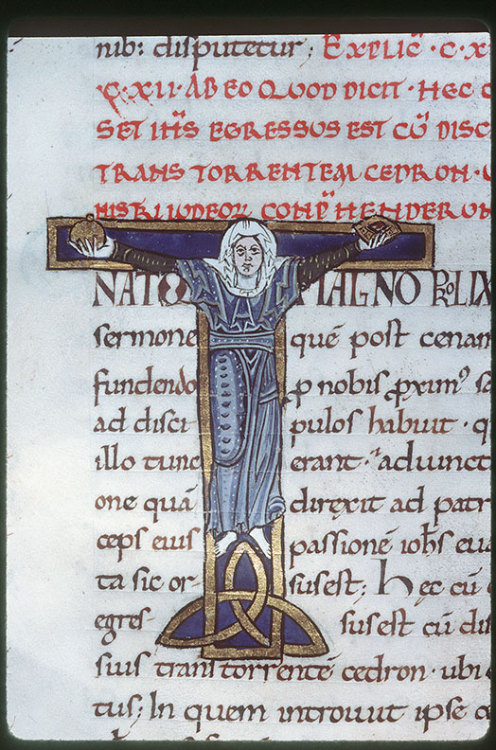 nib: disputetur; EXPLIC̄ · C · X
·C·XII· AB EO QUOD DICIT · HEC C
SET IHS̄ EGRESSUS EST CŪ DISC
TRANS TORRENTEM CEDRON ·
NISTRI IUDEOꝜ CONP̄HENDERUN
NATO MAGNO PROLIX
sermone quē post cenam
fundendo ꝓ nobis ꝓximꝰ sa
ad disci pulos habuit · q
illo tunc erant · adiunct
one quā direxit ad patr
ceps eius passionē ioh̄s eua
ta sic or susest; Hęc cū
egres susest cū dis
suis trans torrentē cedron · ubi
tus; In quem introiuit ipse